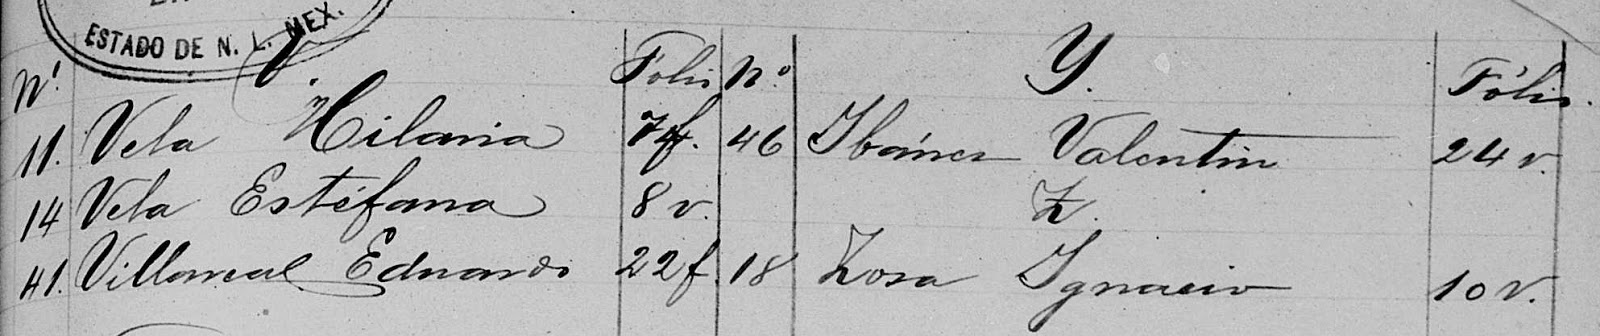 ESTADO DE N. L. MEX.
Nº V. Folio Nº Y. Fólio.
11. Vela Hilaria 7f. 46 Ibánez Valentin 24 v.
14 Vela Estéfana 8 v. Z.
41. Villarreal Eduardo 22f. 18 Zosa Ygnacio 10 v.